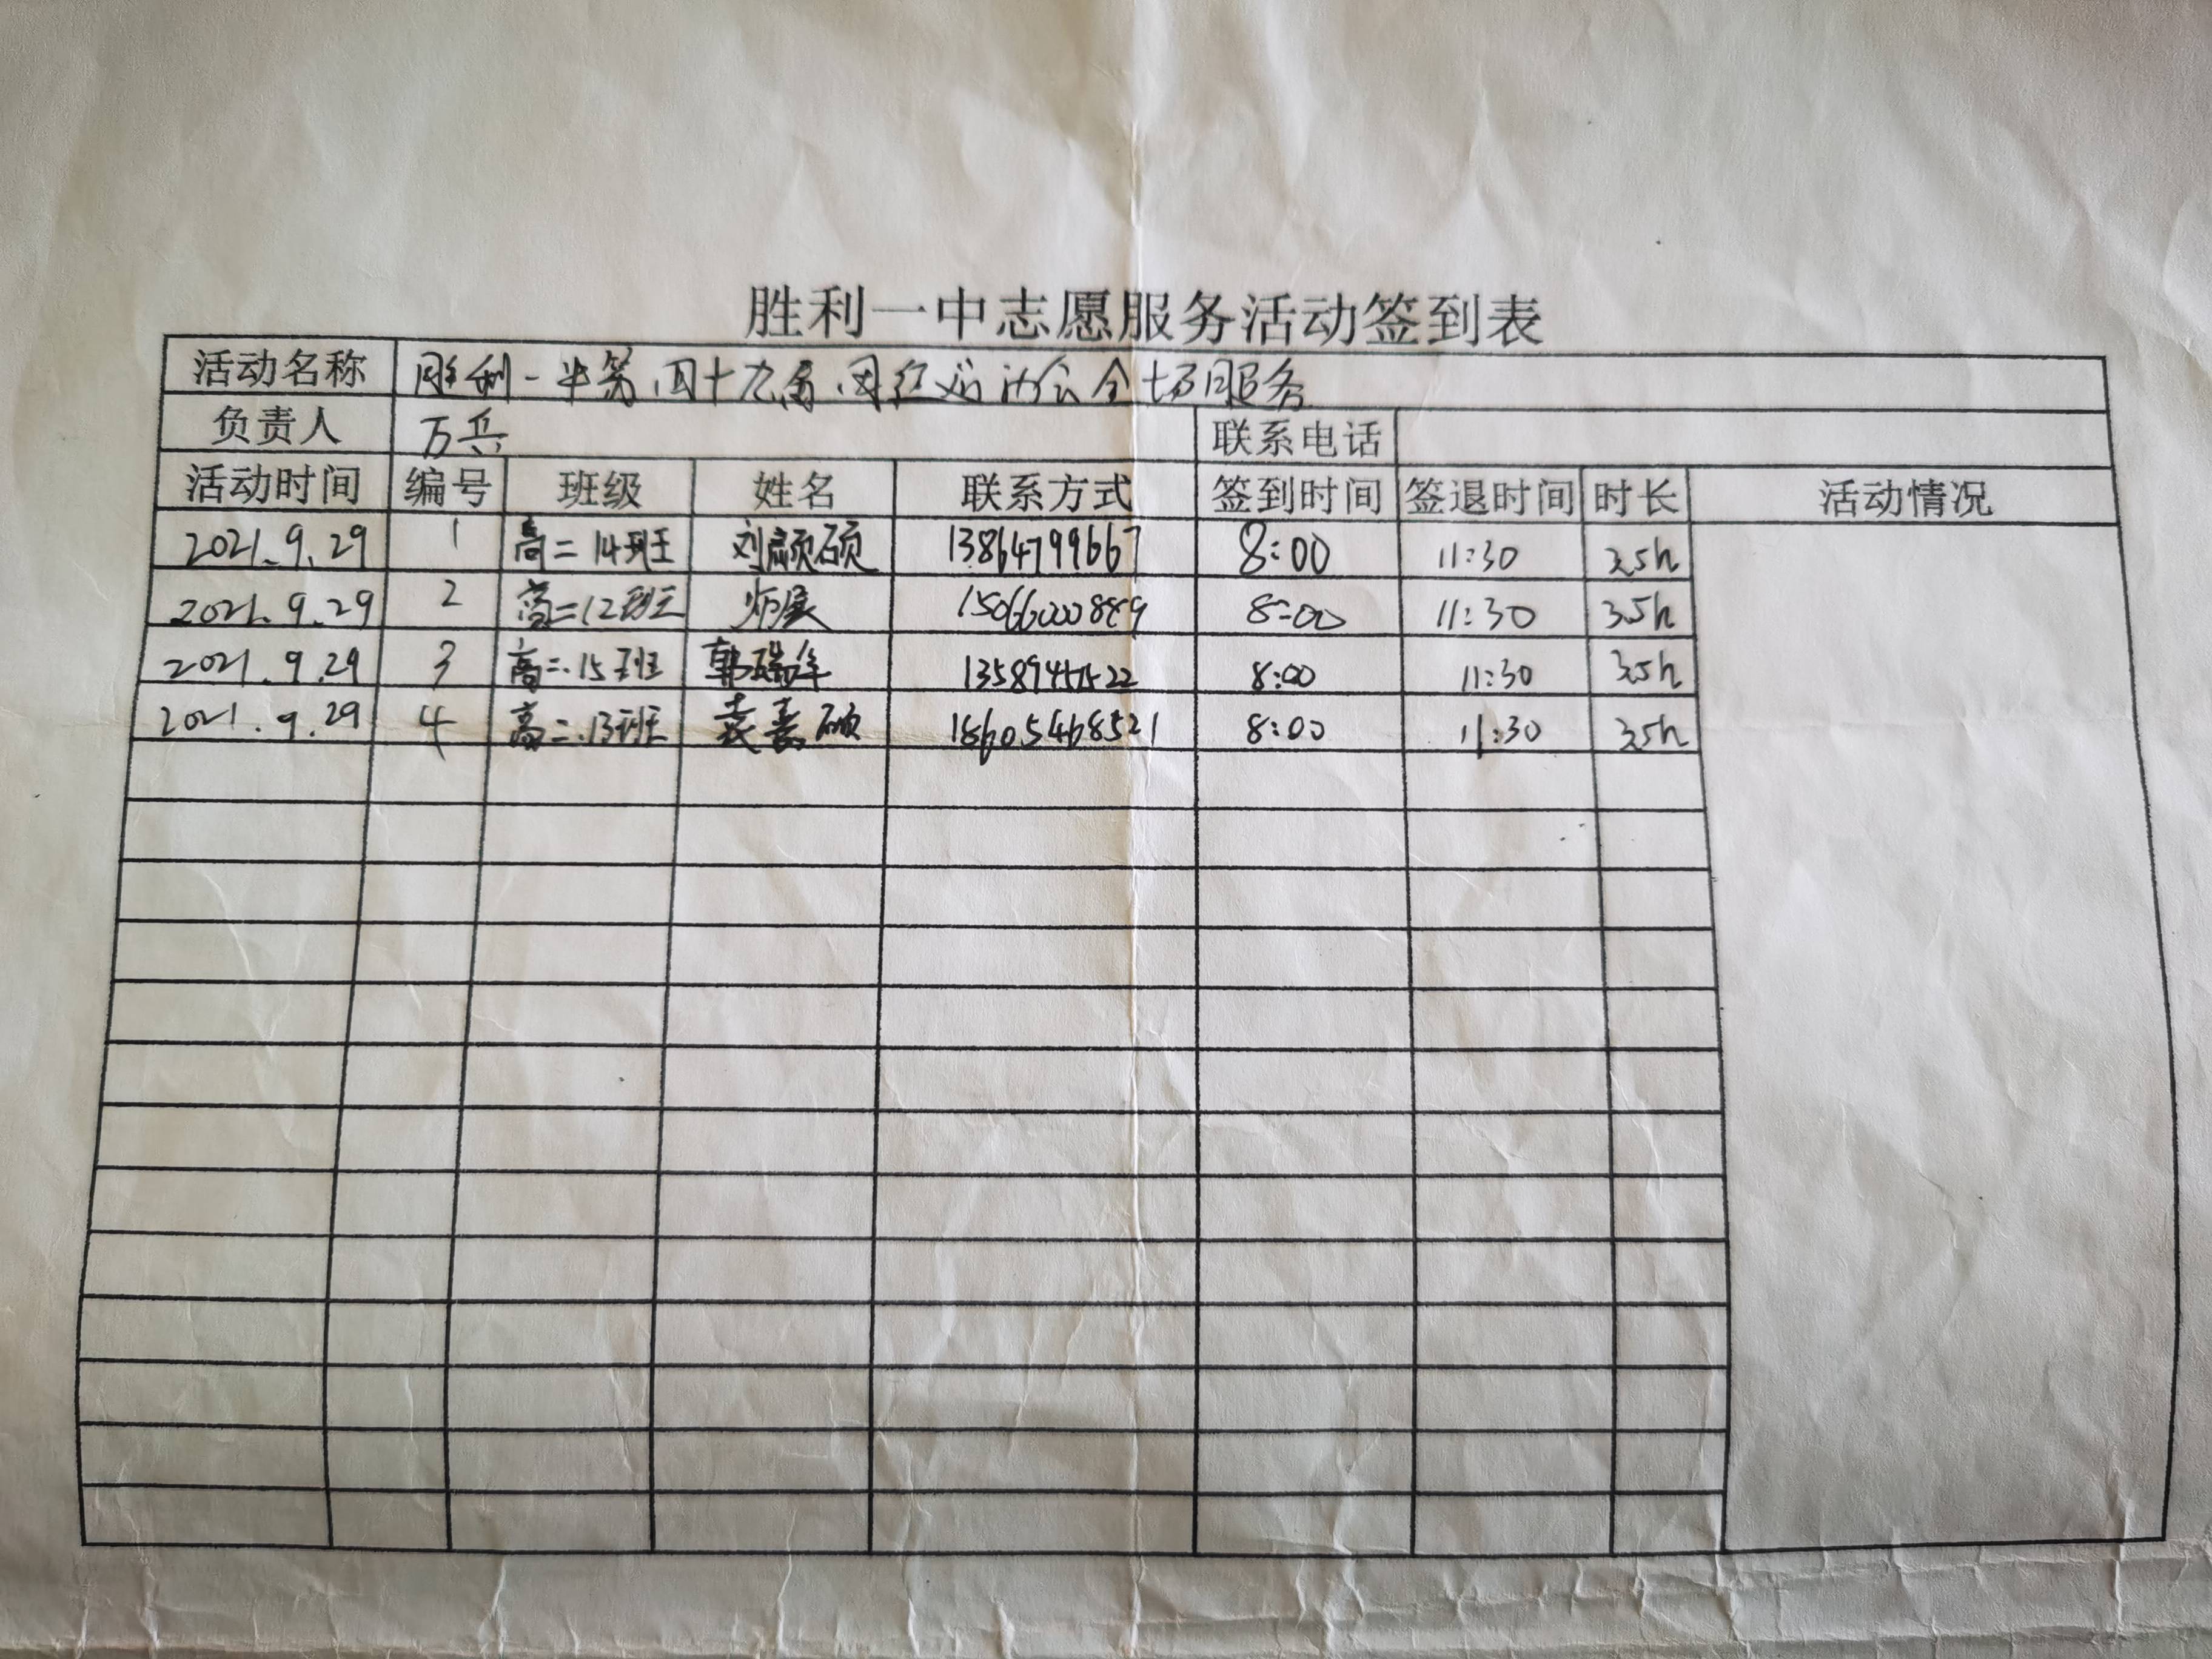 胜利一中志愿服务活动签到表
活动名称 胜利一中第四十九届田径运动会全场服务
负责人 万兵 联系电话
活动时间 编号 班级 姓名 联系方式 签到时间 签退时间 时长 活动情况
2021.9.29 1 高二14班 刘颜硕 13864799667 8:00 11:30 3.5h
2021.9.29 2 高二12班 8:00 11:30 3.5h
2021.9.29 3 高二.15班 8:00 11:30 3.5h
2021.9.29 4 高二.13班 袁嘉硕 18605468521 8:00 11:30 3.5h